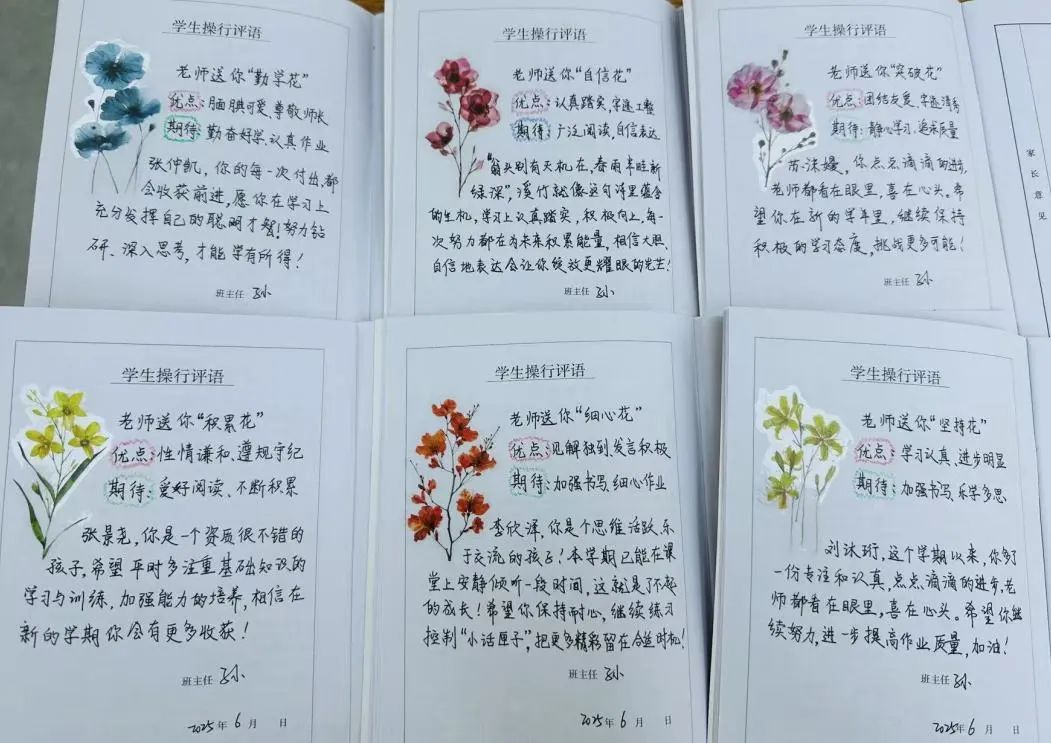 学生操行评语
老师送你“勤学花”
优点：腼腆可爱、尊敬师长
期待：勤奋好学、认真作业
张仲凯，你的每一次付出，都
会收获前进，愿你在学习上
充分发挥自己的聪明才智！努力钻
研、深入思考，才能学有所得！
班主任 孙
学生操行评语
老师送你“自信花”
优点：认真踏实，字迹工整
期待：广泛阅读，自信表达
“箭头别有天机在，春雨半晴新
绿深”，溪竹就像这句诗里蕴含
的生机，学习上认真踏实，积极向上，每一
次努力都在为未来积累能量，相信大胆、
自信地表达会让你绽放更耀眼的光芒！
班主任 孙
学生操行评语
老师送你“突破花”
优点：团结友爱、字迹清秀
期待：静心学习、追求质量
苗沫嫚，你点点滴滴的进步，
老师都看在眼里，喜在心头。希
望你在新的学年里，继续保持
积极的学习态度，挑战更多可能！
班主任 孙
家长意见
学生操行评语
老师送你“积累花”
优点：性情谦和、遵规守纪
期待：爱好阅读、不断积累
张景尧，你是一个资质很不错的
孩子，希望平时多注重基础知识的
学习与训练，加强能力的培养，相信在
新的学期你会有更多收获！
班主任 孙
2025年6月 日
学生操行评语
老师送你“细心花”
优点：见解独到、发言积极
期待：加强书写、细心作业
李欣泽，你是个思维活跃、乐
于交流的孩子！本学期已能在课
堂上安静倾听一段时间，这就是了不起
的成长！希望你保持耐心，继续练习
控制“小话匣子”，把更多精彩留在合适时机！
班主任 孙
2025年6月 日
学生操行评语
老师送你“坚持花”
优点：学习认真、进步明显
期待：加强书写、乐学多思
刘沐珩，这个学期以来，你多了
一份专注和认真，点点滴滴的进步，老
师都看在眼里，喜在心头。希望你继
续努力，进一步提高作业质量，加油！
班主任 孙
2025年6月 日